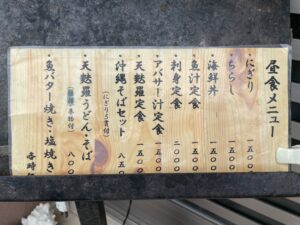 昼食メニュー
・にぎり 一五〇〇
・ちらし 一五〇〇
・海鮮丼 一五〇〇
・魚汁定食 一五〇〇
・刺身定食 二〇〇〇
・アバサー汁定食 一五〇〇
・天麩羅定食 一五〇〇
・沖縄そばセット 八五〇
(にぎり5貫付)
・天麩羅うどん・そば 八〇〇
・魚バター焼き・塩焼き 各時価